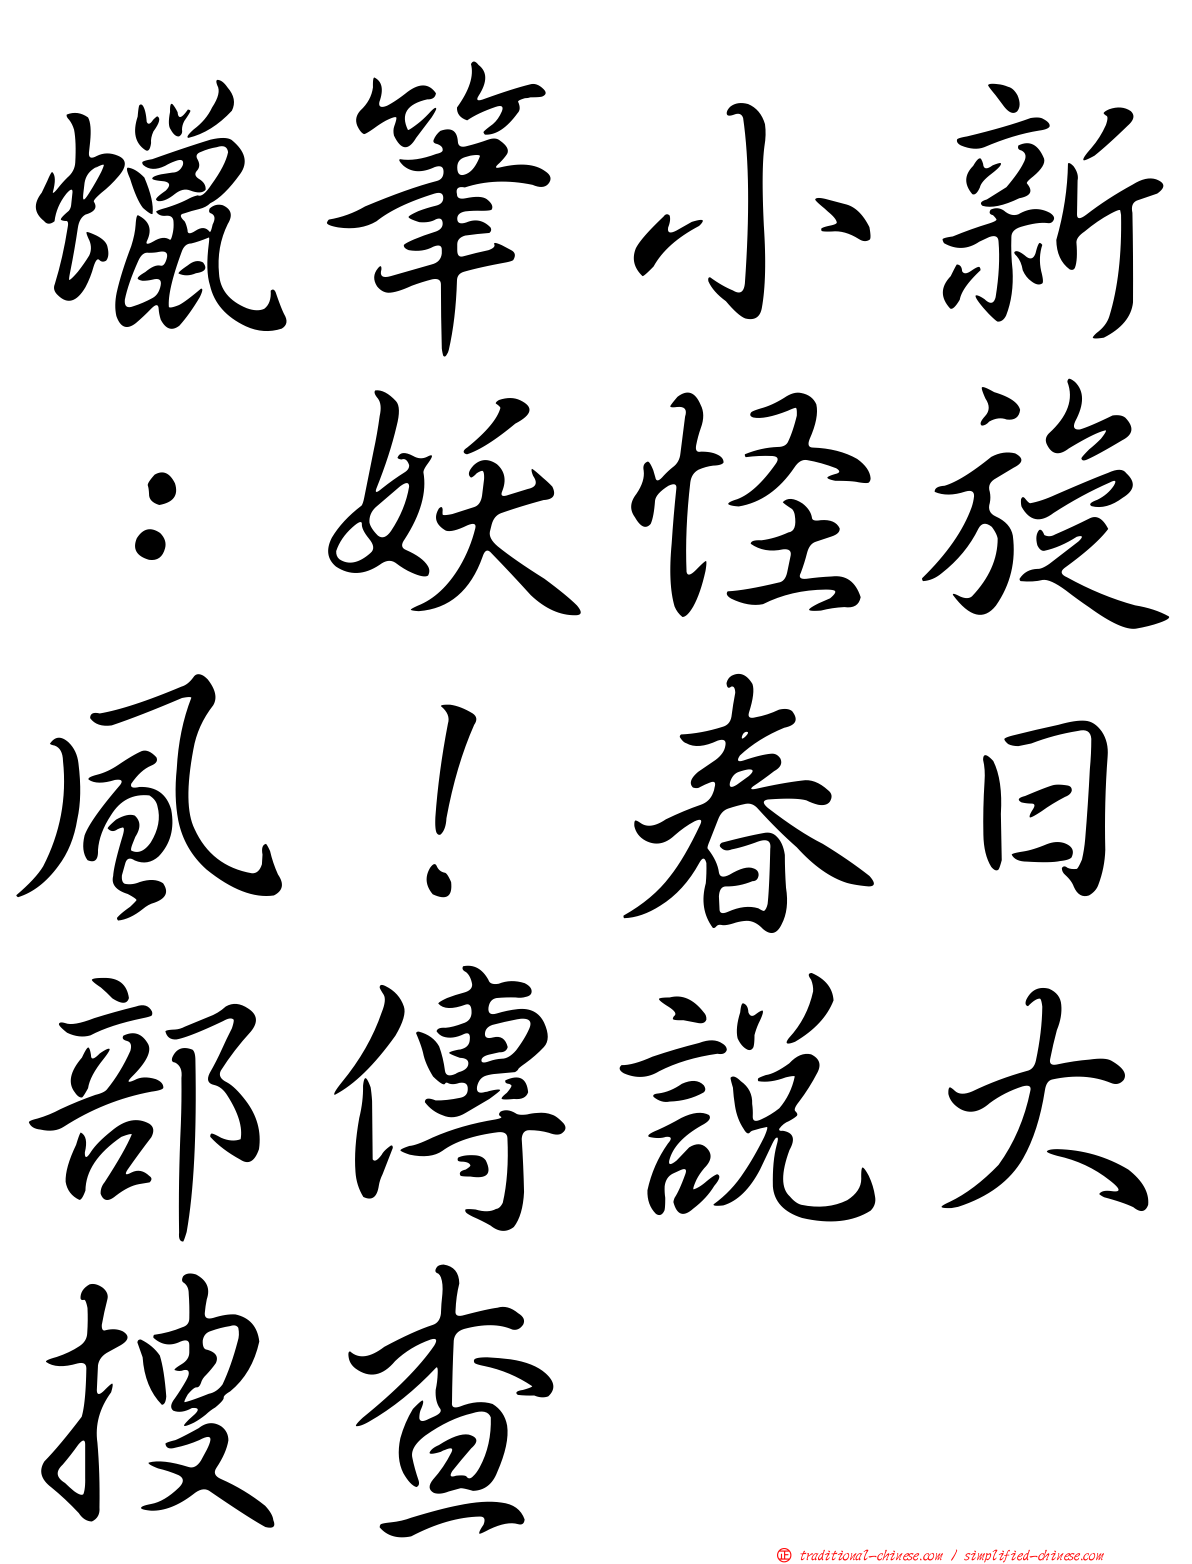 蠟筆小新
：妖怪旋
風！春日
部傳說大
搜查
㊣ traditional-chinese.com / simplified-chinese.com